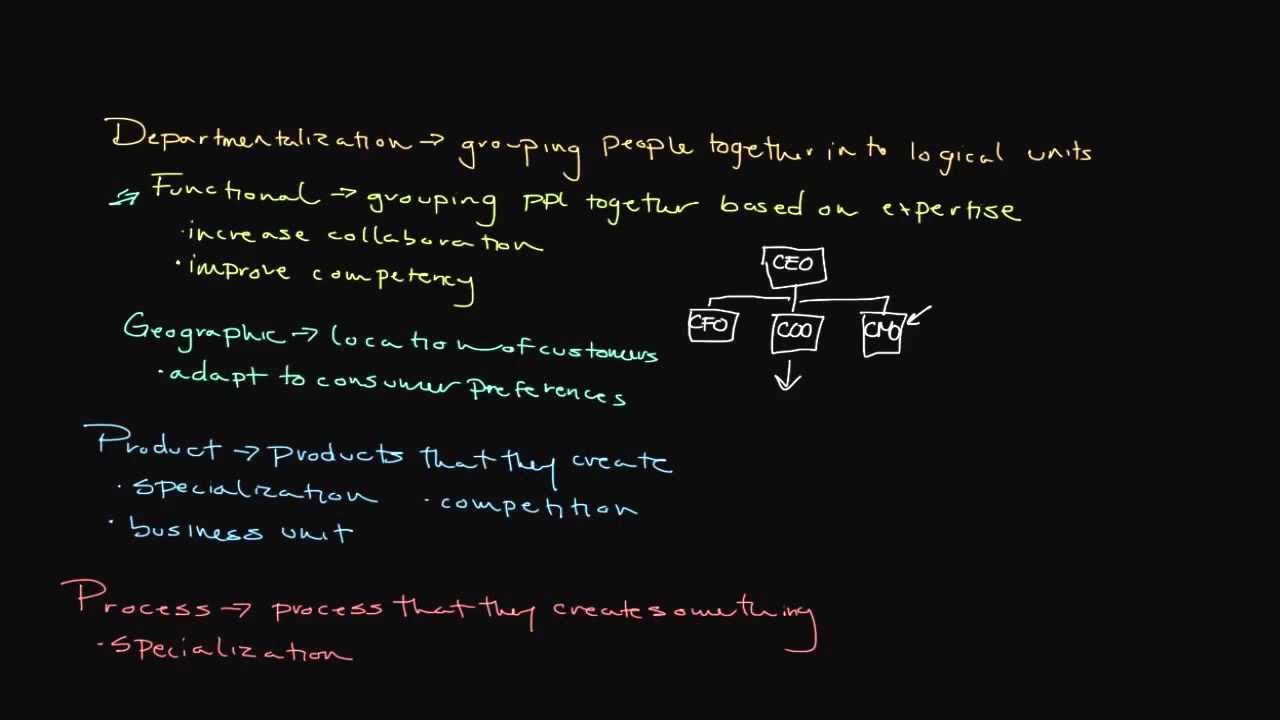 Departmentalization → grouping people together in to logical units
Functional → grouping ppl together based on expertise
· increase collaboration
· improve competency
CEO
CFO COO CMO
Geographic → location of customers
· adapt to consumer preferences
Product → products that they create
· specialization · competition
· business unit
Process → process that they create something
· specialization